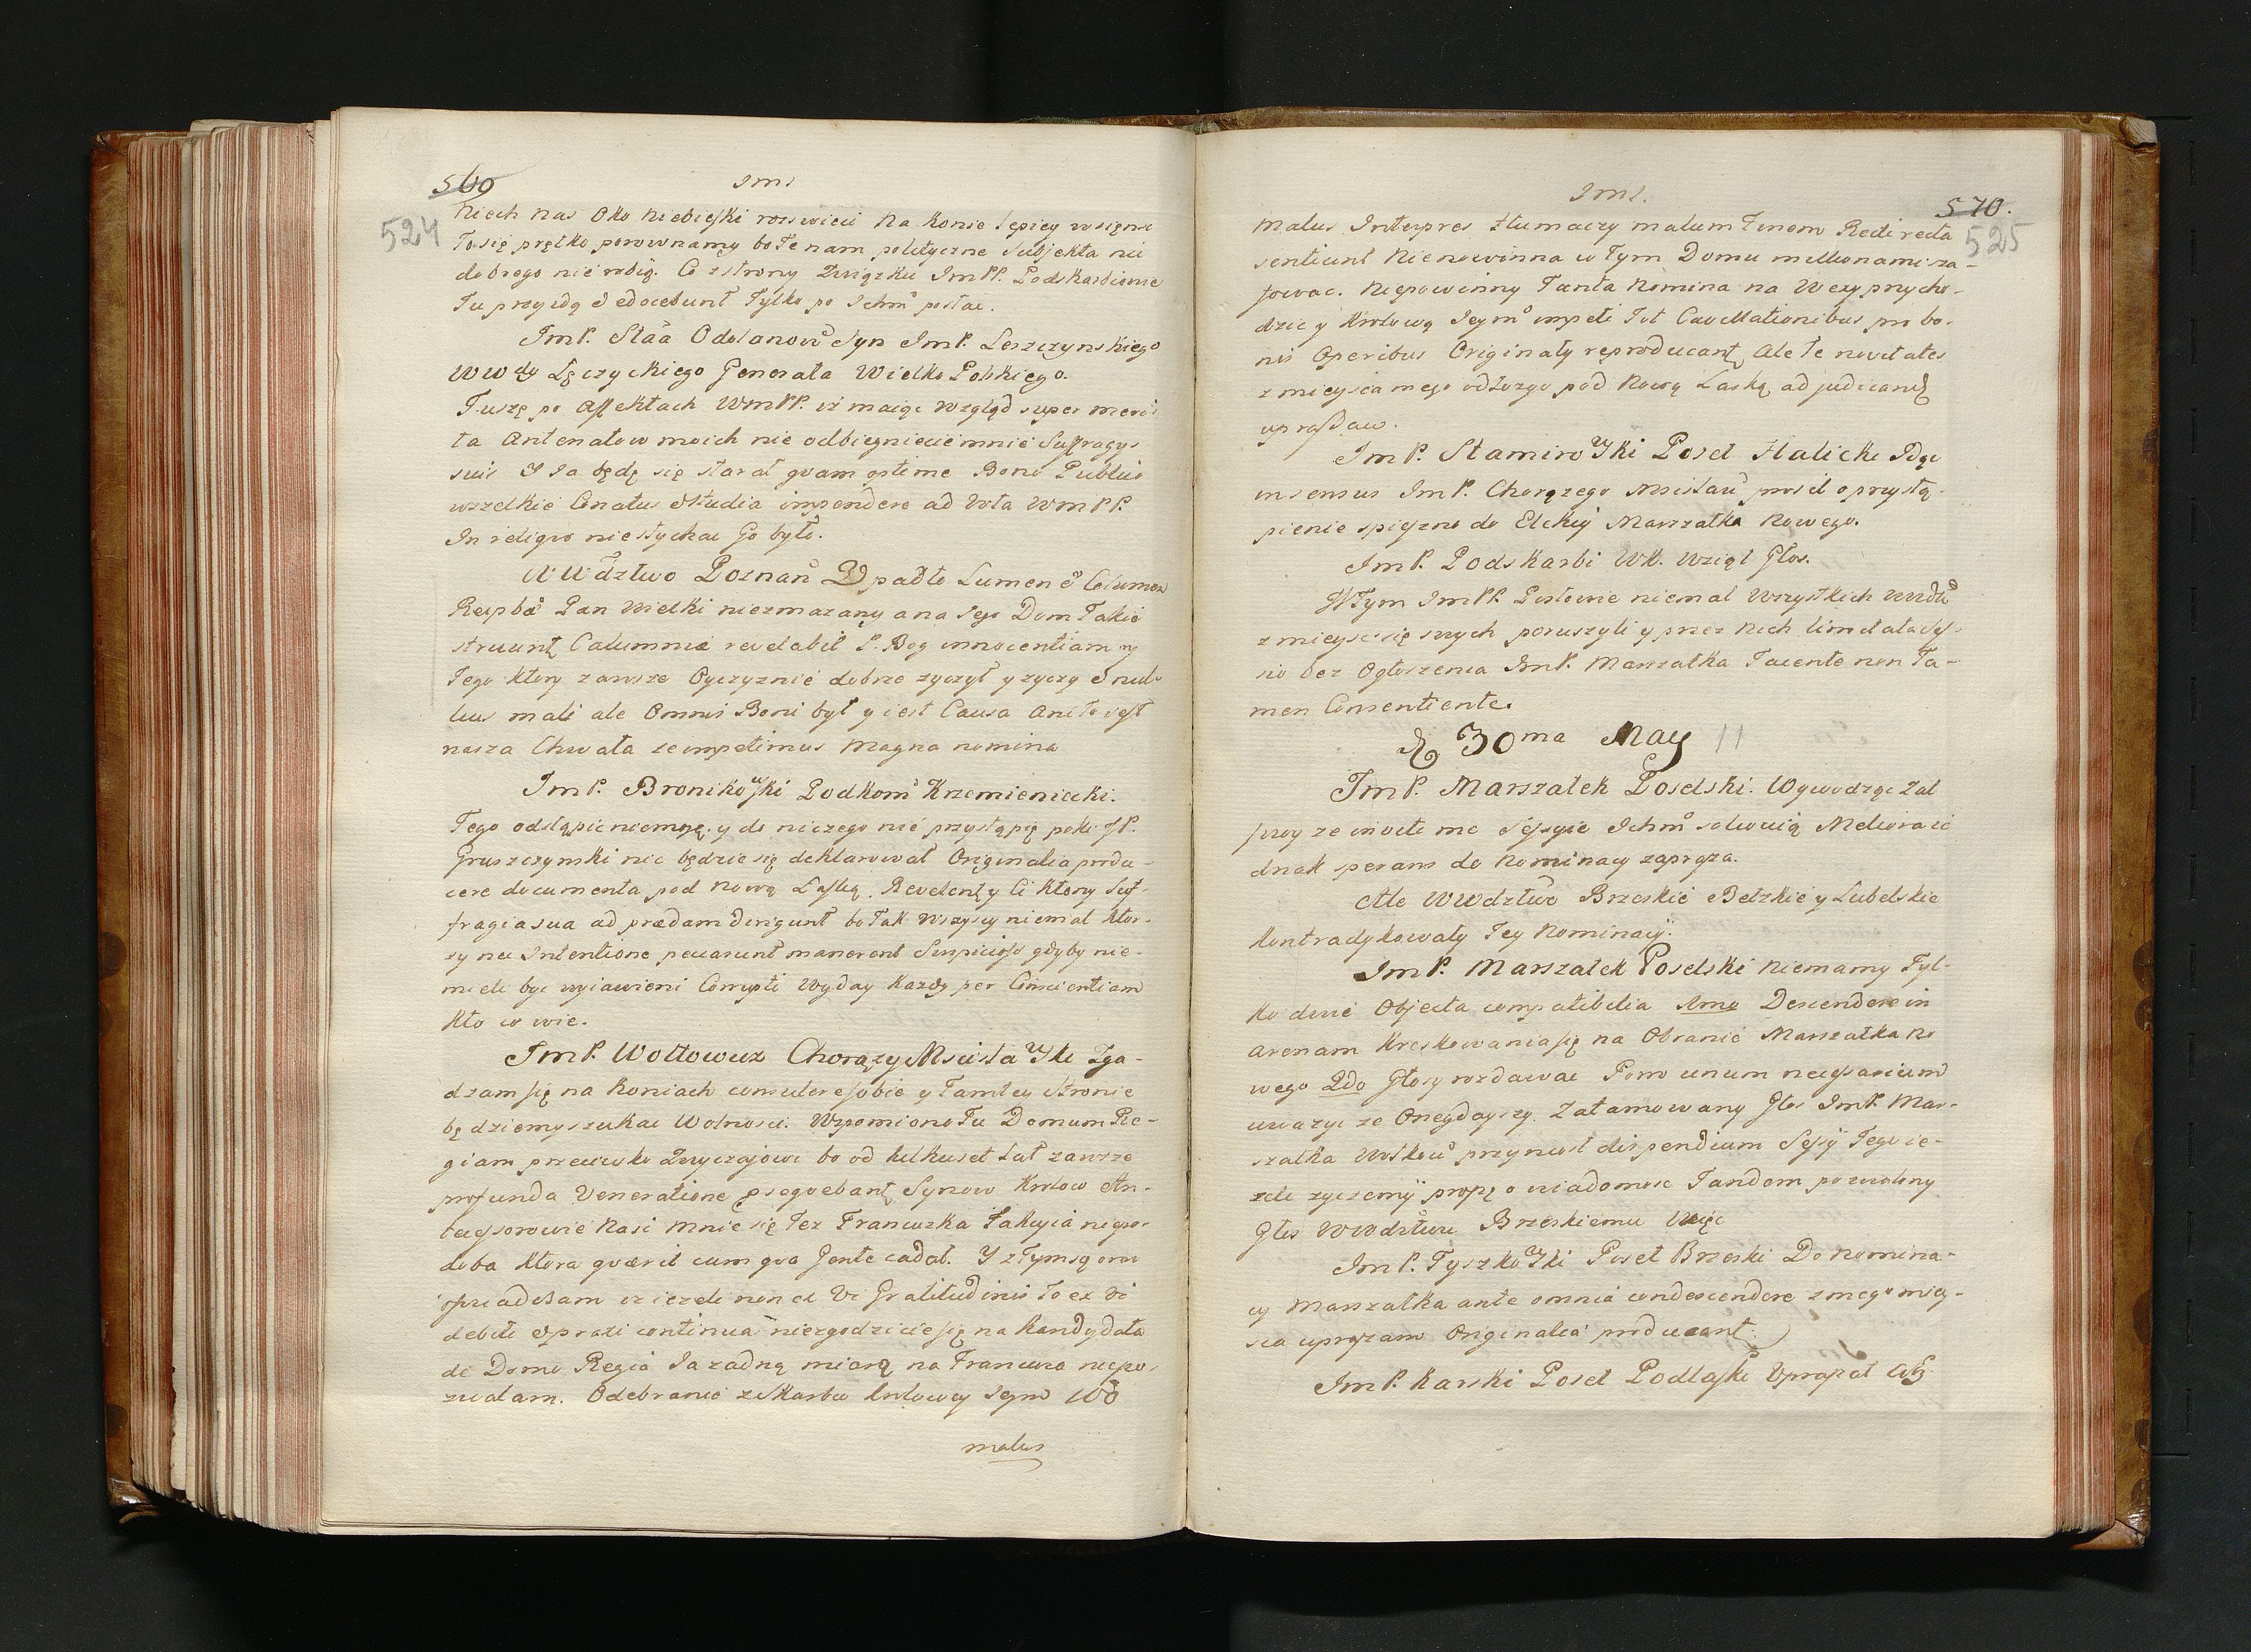 569
Im:
524
Niech nas Oko Niebieſki rozswieci Na Konie lepiey wsięnu
To się prętko porownamy bo Te nam polityczne Subjekta nic
dobrego nie robią. Co z strony Związku ImPP. Podskarbiowie
Tu przyidą & edocebunt Tylko po Ichm̃ posłac.
ImP. Staã Odolanow̃ Syn ImP. Leszczynskiego
WWdy Łęczyckiego Generała Wielko Polskiego.
Tuszę po affektach WmPP. iż maiąc wzgląd super meri-
ta Antenatow moich nie odbiegniecie mnie Suffragys
suis Y Ia będę się starał qvam optime Bono Publico
wszelkie Conatus & Studia impendere ad Vota WmPP.
In reliqvo nie słychac Go było.
WWdztwo Poznan̄ Upadło Lumen & Columen
Reipbcæ Pan Wielki niezmazany a na Iego Dom Takie
struunt Calumnie revelabit P. Bog innocentiam
Tego ktory zawsze Oyczyznie dobrze zyczył y zyczy & nul-
lius mali ale Omnis Boni był y iest Causa Ani To iest
nasza Chwała se impetimus Magna nomina
ImP. Bronikowſki Podkom̃ Krzemieniecki.
Tego odstąpic niemogę. y do niczego nie przystąpię poki JP.
Gruszczynski nie będzie się deklarował Originalia produ-
cere documenta pod nową Laſką. Revelent y Ci Ktorzy Suf-
fragia sua ad prædam dirigunt bo Tak Wszyscy niemal Ktor-
zy nec Intentione peccarunt manerent Suspiciosi gdyby nie-
mieli byc wyiawieni Corrupti Wyday Kazdy per Conscientiam
Kto co wie.
ImP. Wołłowicz Chorązy Mscisławſki Zga-
dzam się na Koniach consulere sobie y Tamtey Stronie
będziemy szukac Wolnosci. Wspomiono Tu Domum Re-
giam przeciwko Zwyczajowi bo od kilkuset Lat zawsze
profunda Veneratione proseqvebant Synow Krolow An-
tecessorowie Nasi Mnie się Tez Francuzka Fakcyia niepo-
doba Ktora qværit cum qva Gente cadat. Y z Tym
iz iezeli non ex Vi Gratitudinis To ex vi
debiti & praxi continua niezgodzicie się na Kandydata
de Domo Regia Ia zadną miarą na Francuza niepo-
zwalam. Odebranie z Skarbu Krolowey Iey mc
malus
Im:
570.
525
Malus Interpres tłumaczy malum Tenom Recti recta
sentiunt Nienowinna w Tym Domu millionami sza-
fowac. Niepowinny Tanta Nomina na Wety przycho-
dzic y Krolową Ieym̃ impeti Tot Cavillationibus pro bo-
nis Operibus Originały reproducant Ale Te novitates
z mieysca mego odłozyc pod Nową Laską ad judicand
upraszam.
ImP. Stamirowſki Poseł Halicki Idąc
in sensus ImP. Chorązego Mscisław̃ prosił o przystą-
pienie spieszne do Elekcij Marszałka Nowego.
ImP. Podskarbi WK. wziął Głos.
W Tym ImPP. Posłowie niemal wszystkich WWdztw
z mieysc się swych poruszyli y przez Nich limitata Ses-
sio bez Ogłoszenia ImP. Marszałka Tacente non Ta-
men Consentiente.
D 30ma May 11
ImP. Marszałek Poselski. Wywodząc Zal
swoy ze invite me Seſsyie Ichm̃ solwuią Meliora ie
dnak sperans do Nominacy zaprasza.
Ale WWdztwo Brzeskie Bełzkie y Lubelskie
Kontradykowały Tey Nominacij.
ImP. Marszałek Poselski Niemamy Tyl-
ko dwie Objecta compatibilia Imo Descendere in
arenam Kreskowania się na Obranie Marszałka No
wego 2do Głosy rozdawac Porro unum necessarium
uwazyc ze Onegdayszy Zatamowany Głos ImP. Mar-
szałka Woskow̃ przyniosł dispendium Sessij Tego ie-
zeli zyczemy proszę o wiadomosc Tandem pozwolony
Głos WWdztwu Brzeskiemu Więc
ImP. Tyszkowſki Poseł Brzeski Do Nomina-
cy Marszałka ante omnia condescendere z mego miey-
sca upraszam Originalia producant.
ImP. Karski Poseł Podlaſki Upraszał aby